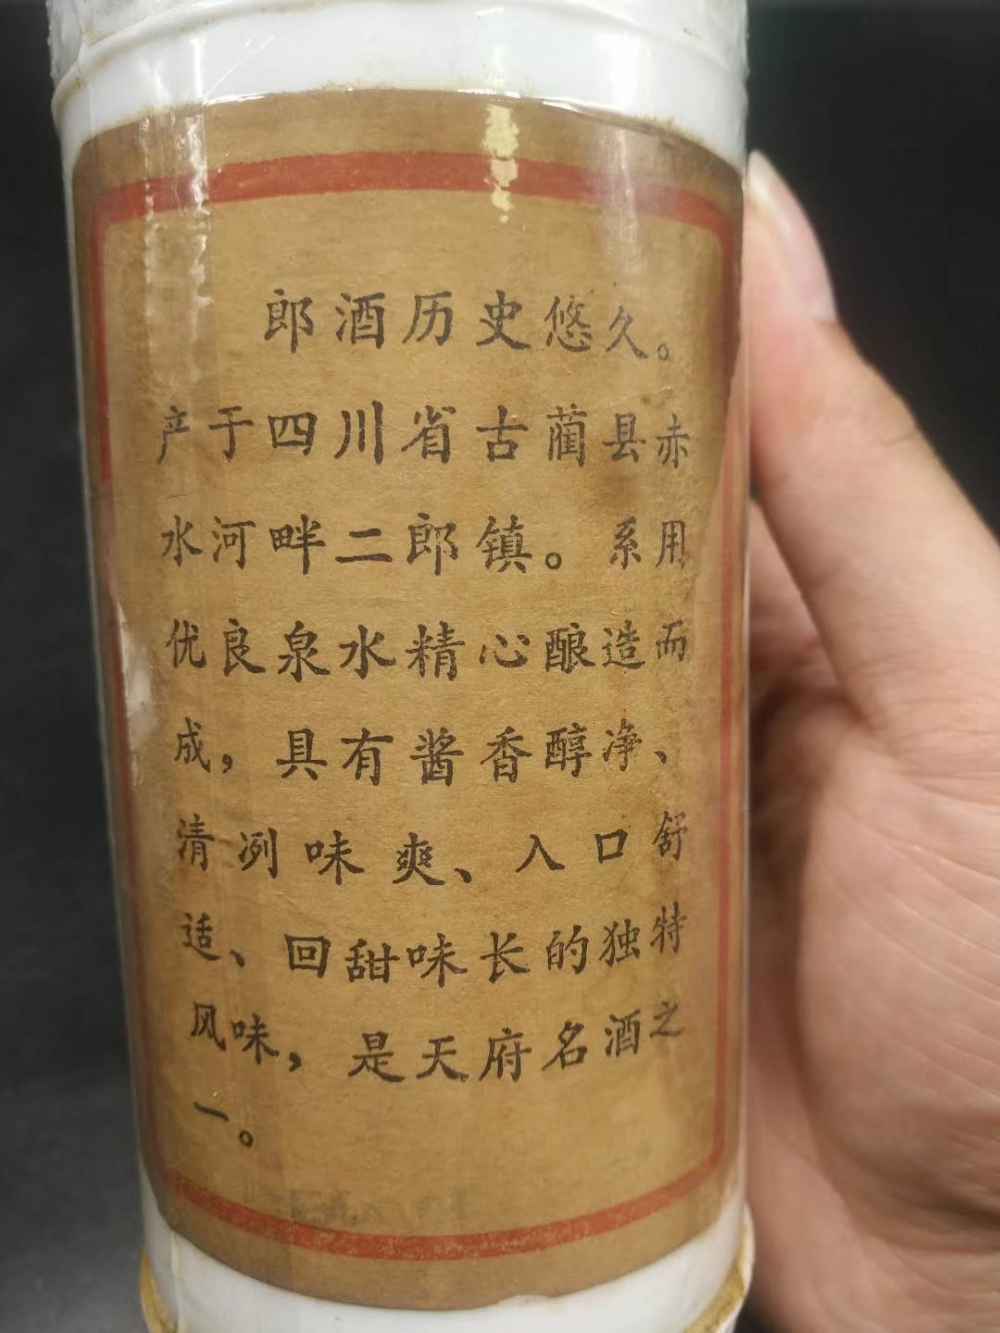 郎酒历史悠久。
产于四川省古蔺县赤
水河畔二郎镇。系用
优良泉水精心酿造而
成，具有酱香醇净、
清冽味爽、入口舒
适、回甜味长的独特
风味，是天府名酒之
一。